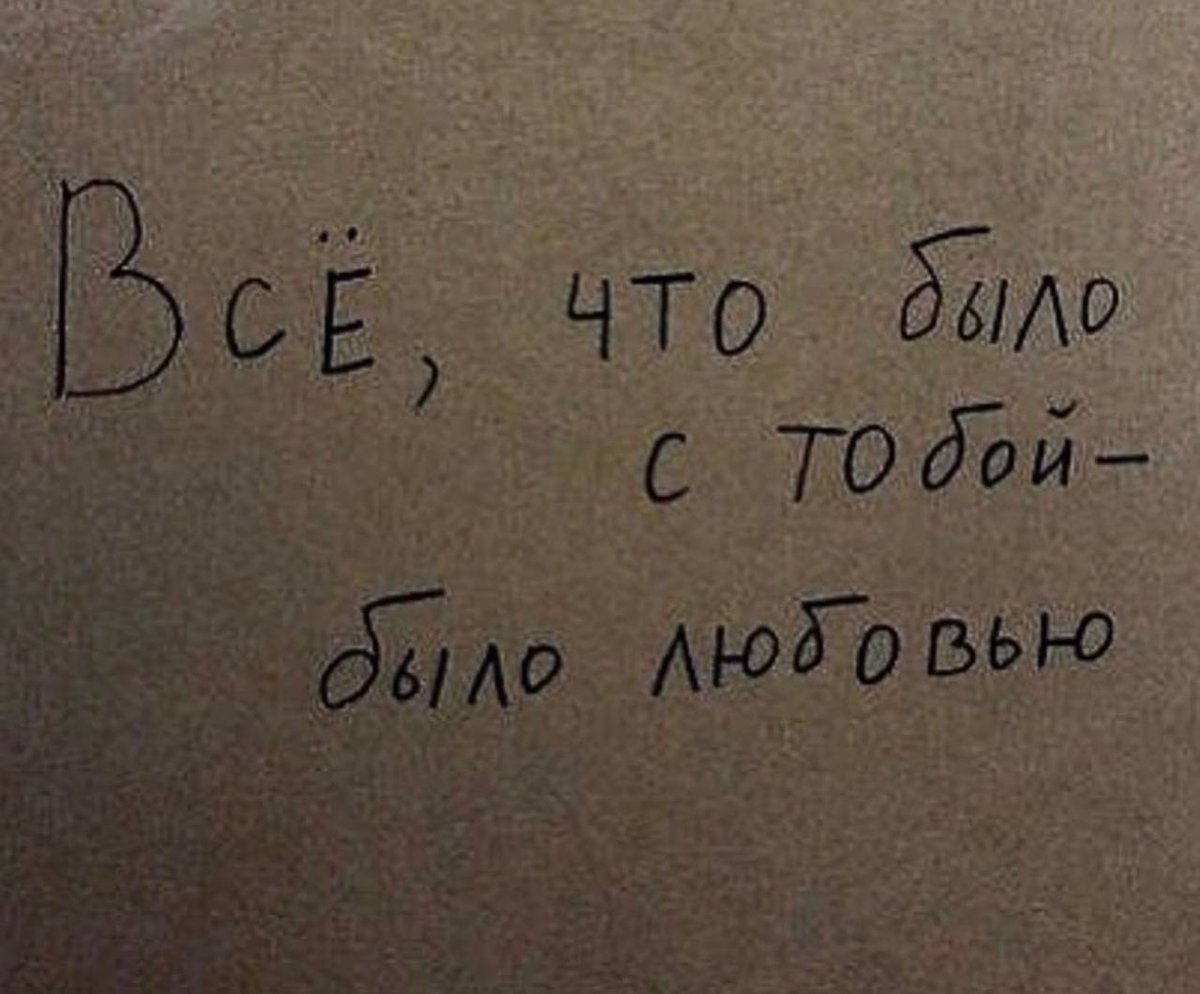 Всё, что было
с тобой –
было любовью